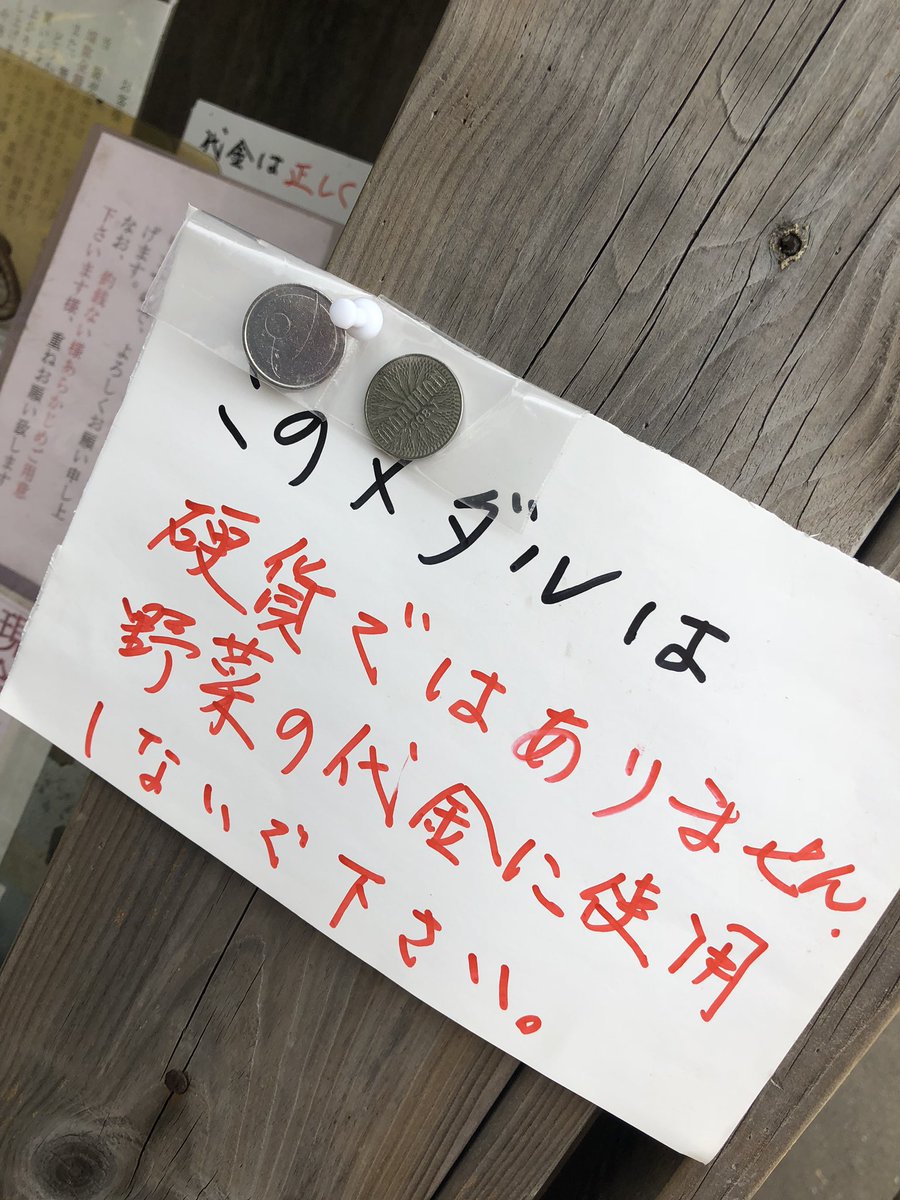 代金は正しく
げます。
なお、
よろしくお願い申し上
下さいます様、重ねお願い致します
現
このメダルは
硬貨ではありません.
野菜の代金に使用
しないで下さい。